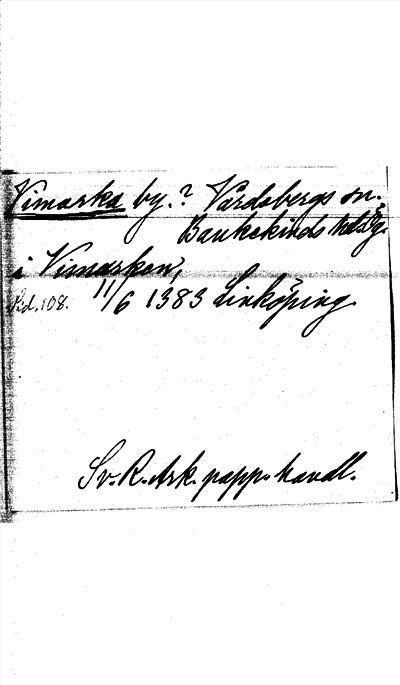 Vimarka by.? Vårdsbergs sn.
Bankekinds hd. Ög.
i Vimarken,
Rd. 108. 11/6 1383 Linköping.
Sv. R. Ark. papp. handl.